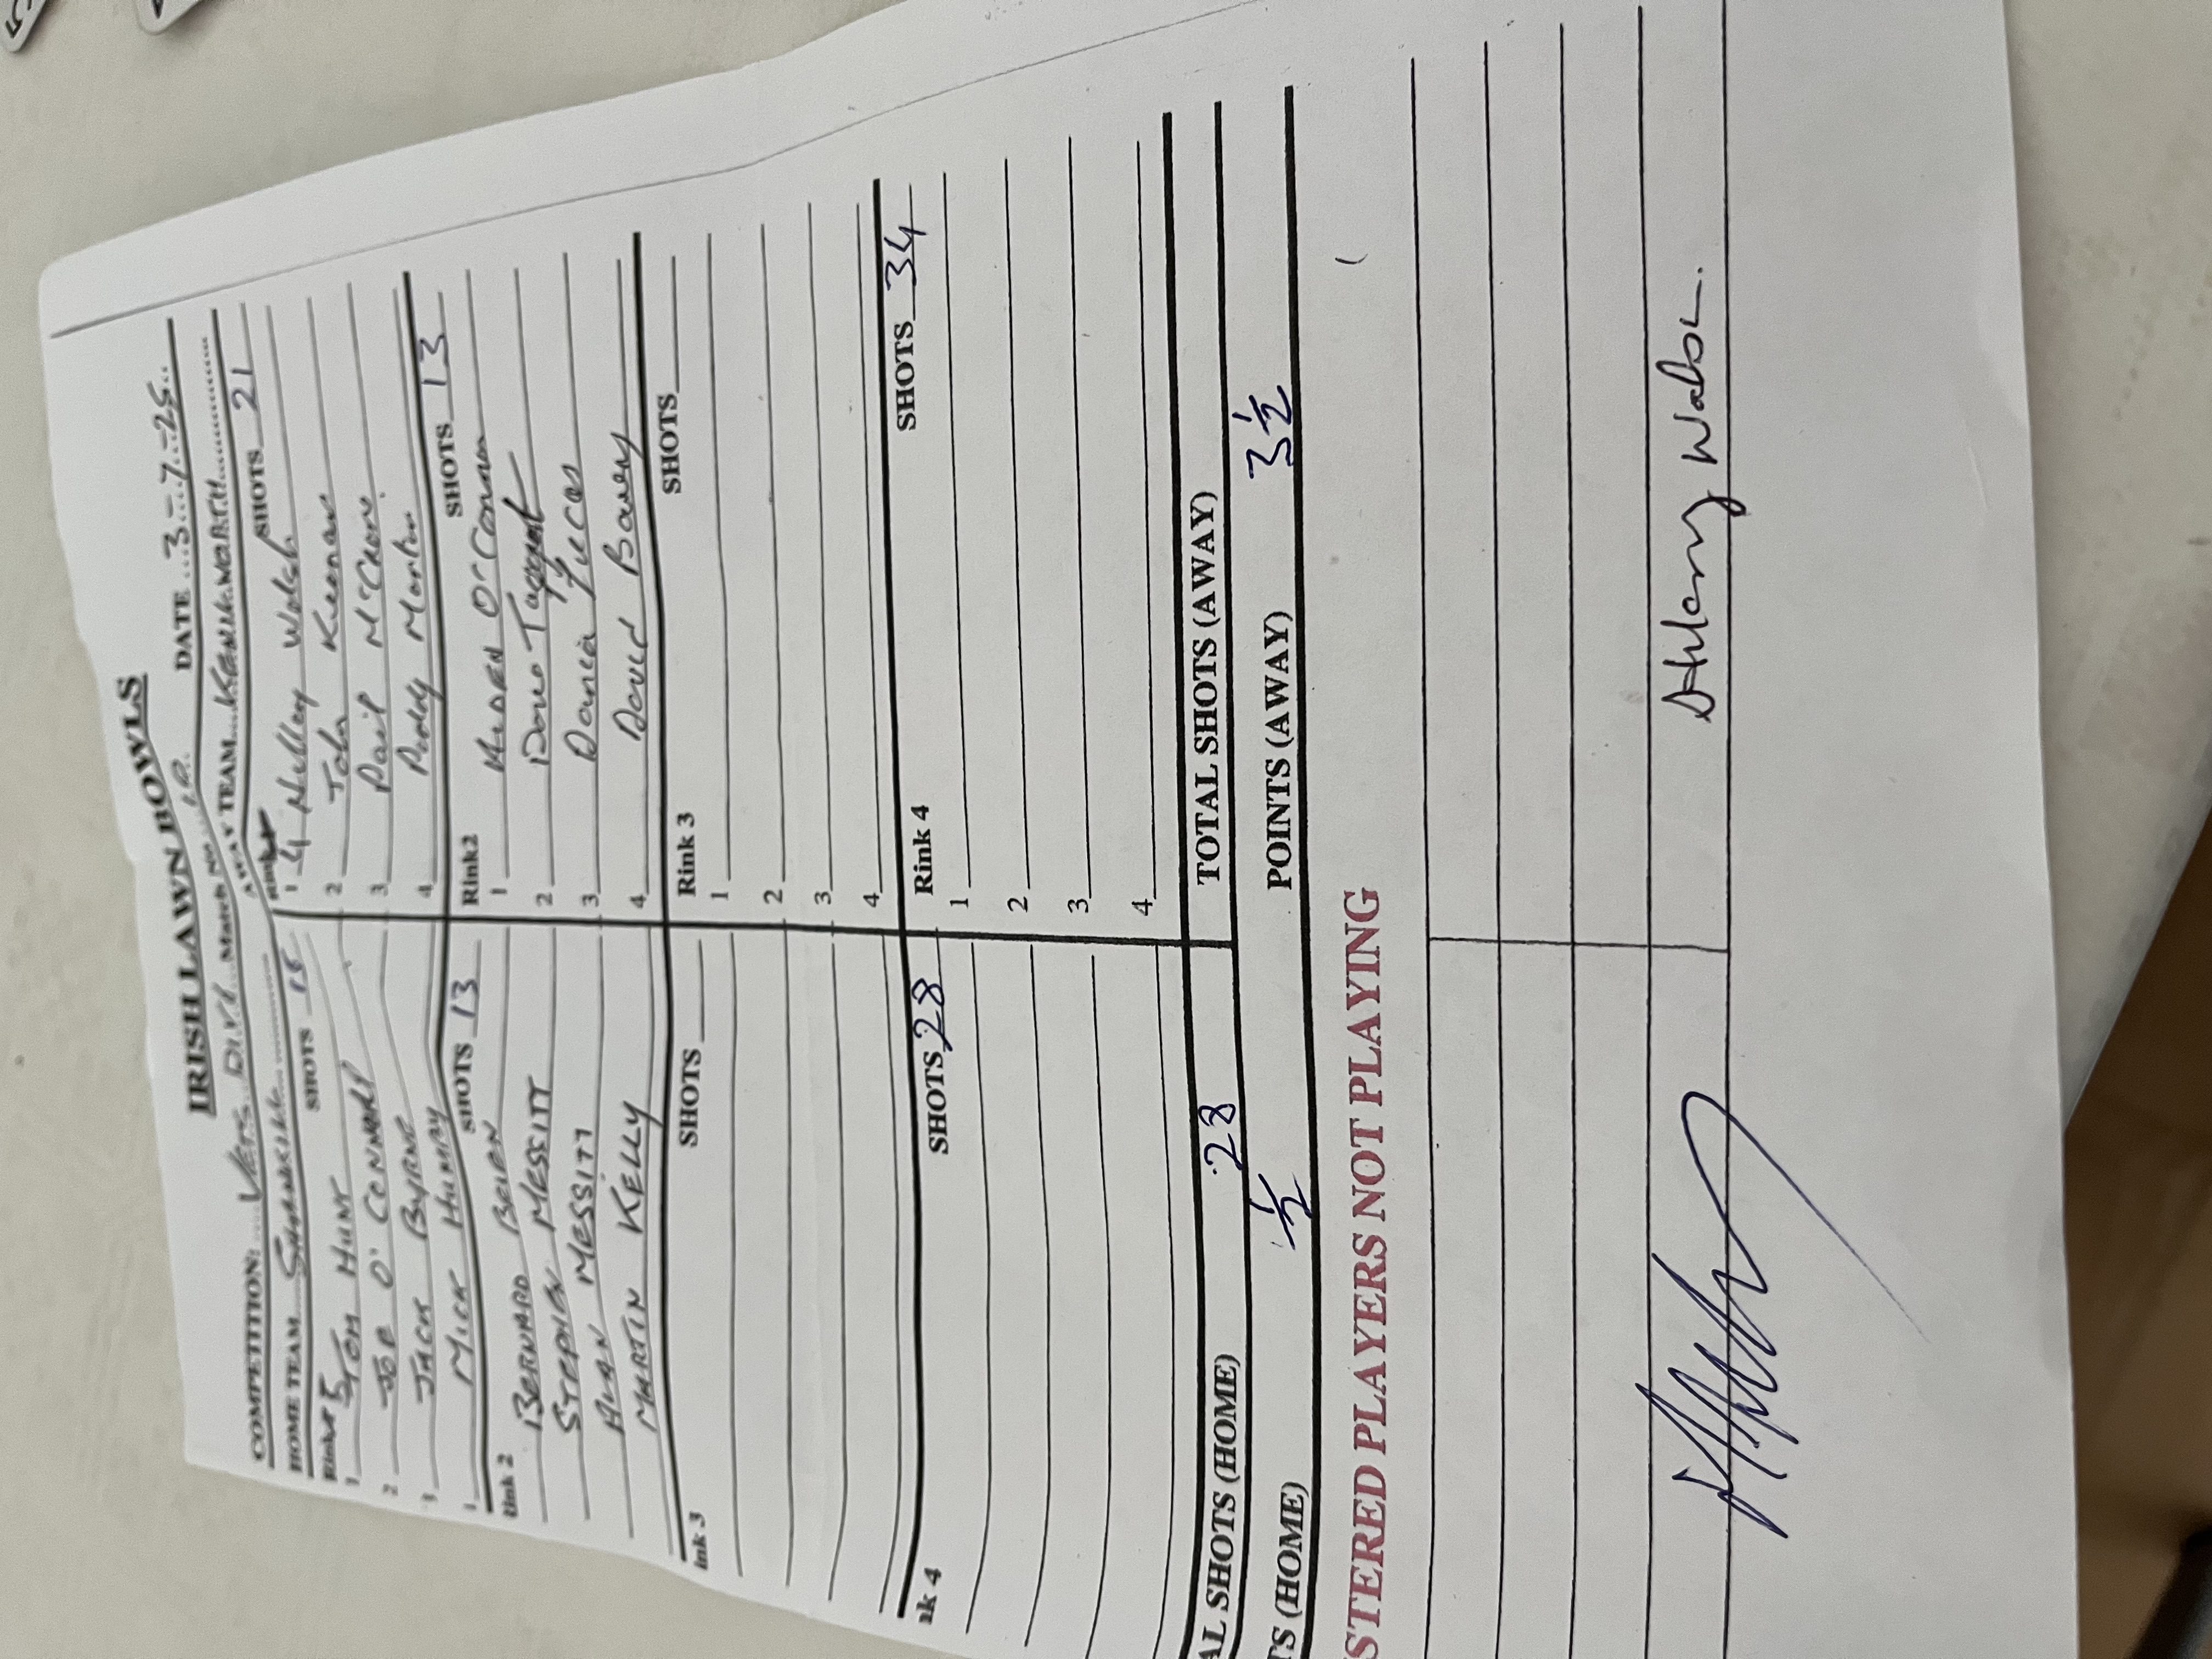 IRISH LAWN BOWLS
COMPETITION: Vets Div 2 Match No. 10. DATE 3-7-25
HOME TEAM Shankill AWAY TEAM KENILWORTH
Rink 5 SHOTS 15
1 TOM HUNT
2 JOE O'CONNOR
3 JACK BYRNE
MICK HUMPHRY
Rink 4 SHOTS 21
1 Walsh
2 John Keenan
3 Paul McCkone
4 Paddy Martin
Rink 2 SHOTS 13
BERNARD BRIEN
STEPHEN MESSITT
ALAN MESSITT
MARTIN KELLY
Rink2 SHOTS 13
1 AIDEN O'Connor
2 Dave Taggart
3 Daniel
4 David Bowey
ink 3 SHOTS
Rink 3 SHOTS
1
2
3
4
nk 4 SHOTS 28
Rink 4 SHOTS 34
1
2
3
4
AL SHOTS (HOME) 28 TOTAL SHOTS (AWAY)
TS (HOME) ½ POINTS (AWAY) 3½
STERED PLAYERS NOT PLAYING